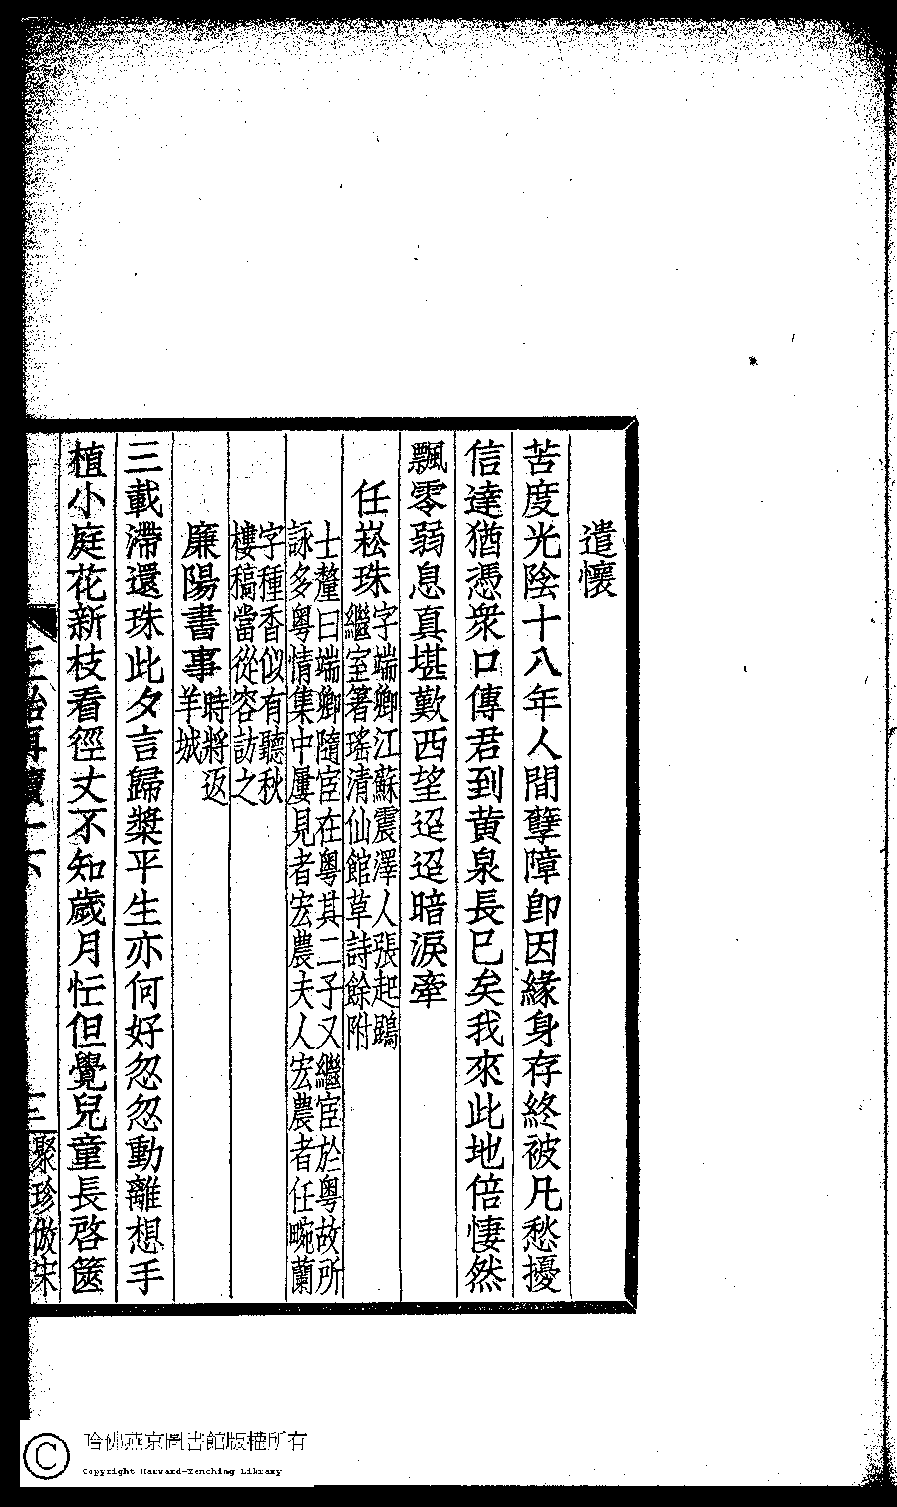 遣懷
苦度光陰十八年人間孽障卽因緣身存終被凡愁擾
信達猶憑衆口傳君到黃泉長已矣我來此地倍悽然
飄零弱息真堪歎西望迢迢暗淚牽
任崧珠
字端卿江蘇震澤人張起鵾
繼室箸瑤清仙館草詩餘附
士釐曰端卿隨宦在粵其二子又繼宦於粵故所
詠多粵情集中屢見者宏農夫人宏農者任畹蘭
字種香似有聽秋
樓稿當從容訪之
廉陽書事
時將返
羊城
三載滯還珠此夕言歸槳平生亦何好忽忽動離想手
植小庭花新枝看徑丈不知歲月忙但覺兒童長啓篋
聚珍倣宋
哈佛燕京圖書館版權所有
Copyright Harvard-Yenching Library